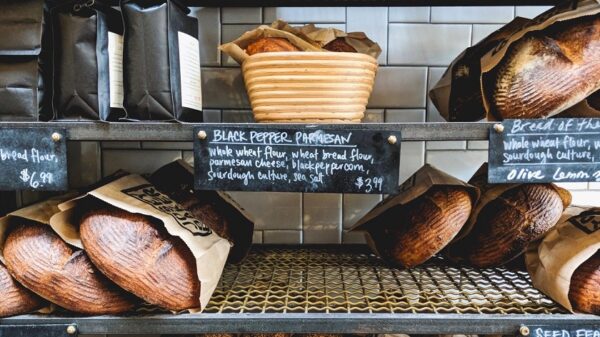 bread flour,
$6.99
BLACK PEPPER PARMESAN
whole wheat flour, wheat bread flour,
parmesan cheese, black peppercorn,
sourdough culture, sea salt $3.99
Bread of th
whole wheat flour, w
sourdough culture,
Olive Lemon
SEED FEA